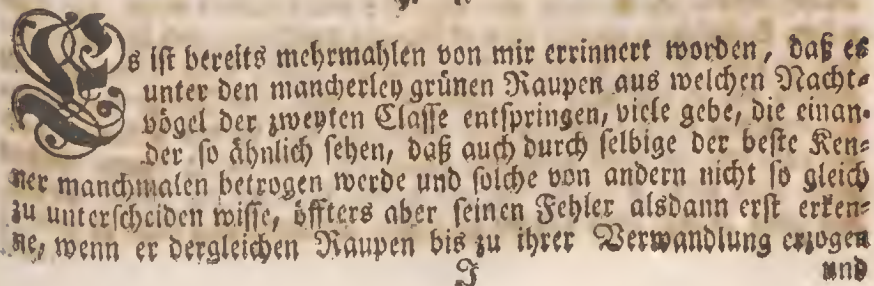 Es ist bereits mehrmahlen von mir errinnert worden, daß es
unter den mancherley grünen Raupen aus welchen Nacht-
vögel der zweyten Classe entspringen, viele gebe, die einan-
der so ähnlich sehen, daß auch durch selbige der beste Ken-
ner manchmalen betrogen werde und solche von andern nicht so gleich
zu unterscheiden wisse, öffters aber seinen Fehler alsdann erst erken-
ne, wenn er dergleichen Raupen bis zu ihrer Verwandlung erzogen
J und